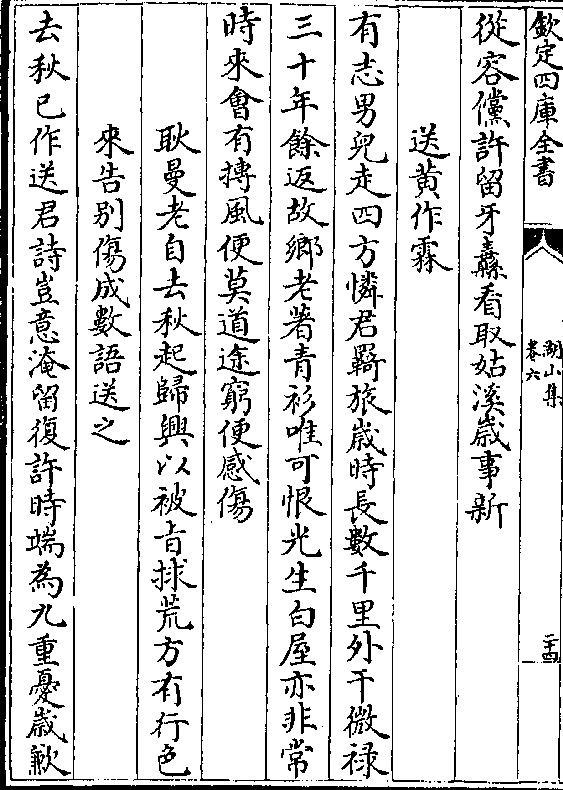 欽定四庫全書
湖山集
卷六
二十四
從容儻許留牙纛看取姑溪歲事新
送黄作霖
有志男兒走四方憐君羇旅歲時長數千里外干微禄
三十年餘返故鄉老著青衫唯可恨光生白屋亦非常
時來會有搏風便莫道途窮便感傷
耿曼老自去秋起歸興以被旨捄荒方有行色
來告别傷成數語送之
去秋已作送君詩豈意淹留復許時端為九重憂歲歉